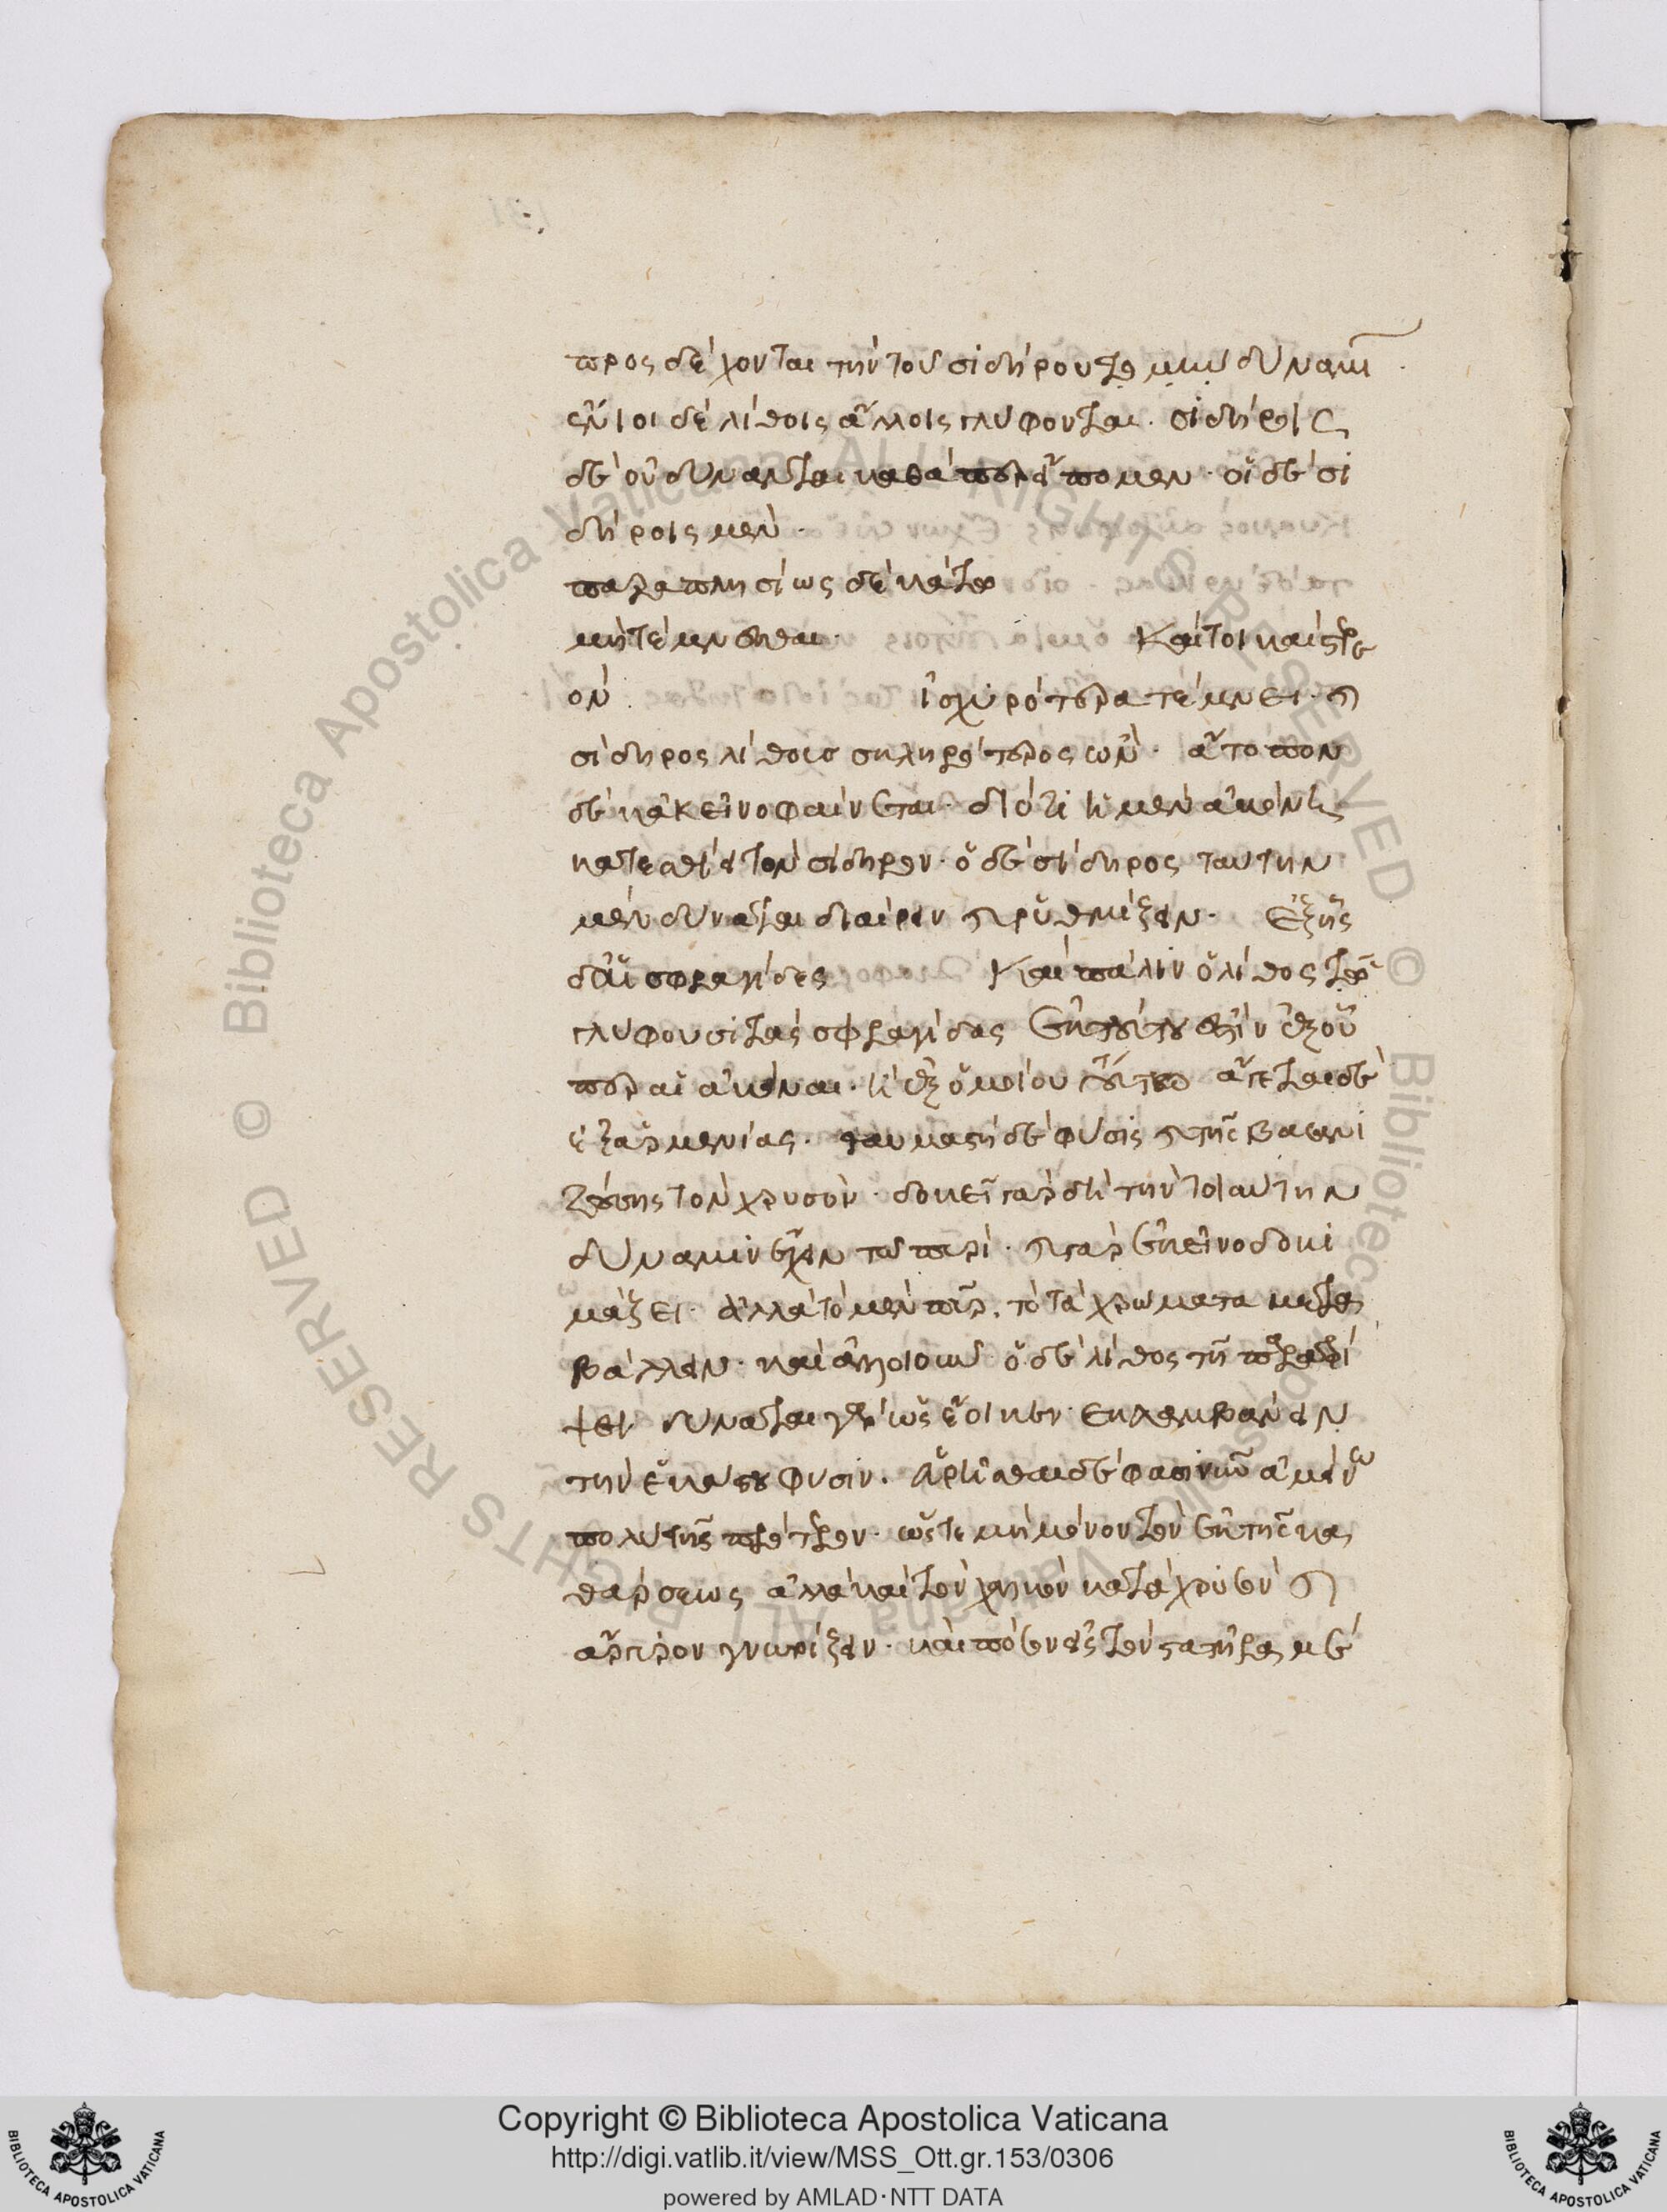 προς δέχονται τὴν τοῦ σιδήρου τεμεῖν δύναμι
ἔνιοι δὲ λίθοις ἄλλοις γλύφονται. σιδηρίοις
δ' οὐ δύνανται καθάπερ εἴπομεν. οἱ δὲ σι
δήροις μὲν.
παραπλησίως δὲ κατὰ
μὴ τέμνεσθαι. Καίτοι καὶ στερε
ὸν. ἰσχυρότερα τέμνει. καὶ
σίδηρος λίθους σκληρότερος ὤν. ἄτοπον
δὲ κἀκεῖνο φαίνεται. διότι ἡ μὲν ἀκόνη
κατεσθίει τὸν σίδηρον. ὁ δὲ σίδηρος ταύτην
μὲν δύναται διαιρεῖν καὶ ῥυθμίζειν. Ἐξ ἧς
δ' αἱ σφραγῖδες Καὶ πάλιν ὁ λίθος ᾧ
γλύφουσι τὰς σφραγῖδας ἐκ τούτου ἐστὶν ἐξ οὗ
περ αἱ ἀκόναι. ἢ ἐξ ὁμοίου τούτῳ ἄγεται δὲ
ἐξ Ἀρμενίας. θαυμαστὴ δὲ φύσις καὶ τῆς βασανι
ζούσης τὸν χρυσὸν. δοκεῖ γὰρ δὴ τὴν τοιαύτην
δύναμιν ἔχειν τῷ πυρί. καὶ γὰρ ἐκεῖνο δοκι
μάζει. ἀλλὰ τὸ μὲν πῦρ. τὸ τὰ χρώματα μετα
βάλλειν. καὶ ἀλλοιοῦν ὁ δὲ λίθος τῇ παρατρί
ψει δύναται γὰρ ὡς ἔοικεν ἐκλαμβάνειν
τὴν ἑκάστου φύσιν. εὑρῆσθαι δὲ φασι νῦν ἀμείνω
πολὺ τῆς πρότερον. ὥστε μὴ μόνον τὸν ἐκ τῆς κα
θάρσεως ἀλλὰ καὶ τὸν χαλκὸν κατάχρυσον καὶ
ἄργυρον γνωρίζειν. καὶ πόσον εἰς τὸν στατῆρα μέ
Copyright © Biblioteca Apostolica Vaticana
http://digi.vatlib.it/view/MSS_Ott.gr.153/0306
powered by AMLAD·NTT DATA
BIBLIOTECA APOSTOLICA VATICANA
BIBLIOTECA APOSTOLICA VATICANA